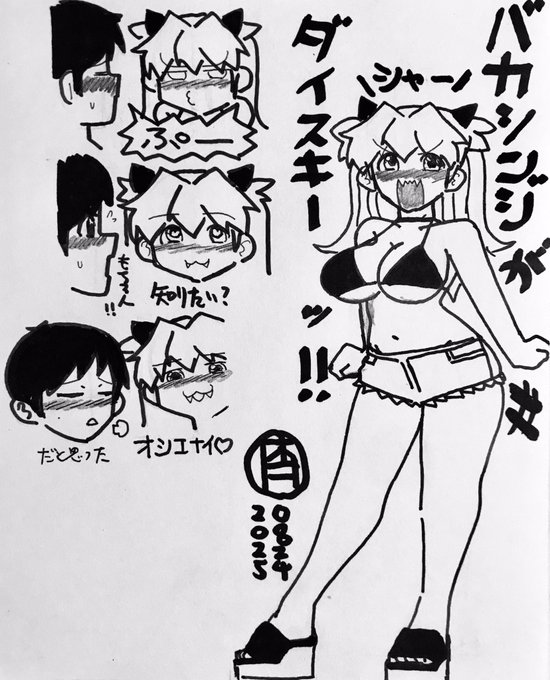 バカシンジが
ダイスキーッ!!
\シャー/
ぷー
もちろん!!
知りたい?
だと思った
オシエナイ♡
2025
0824